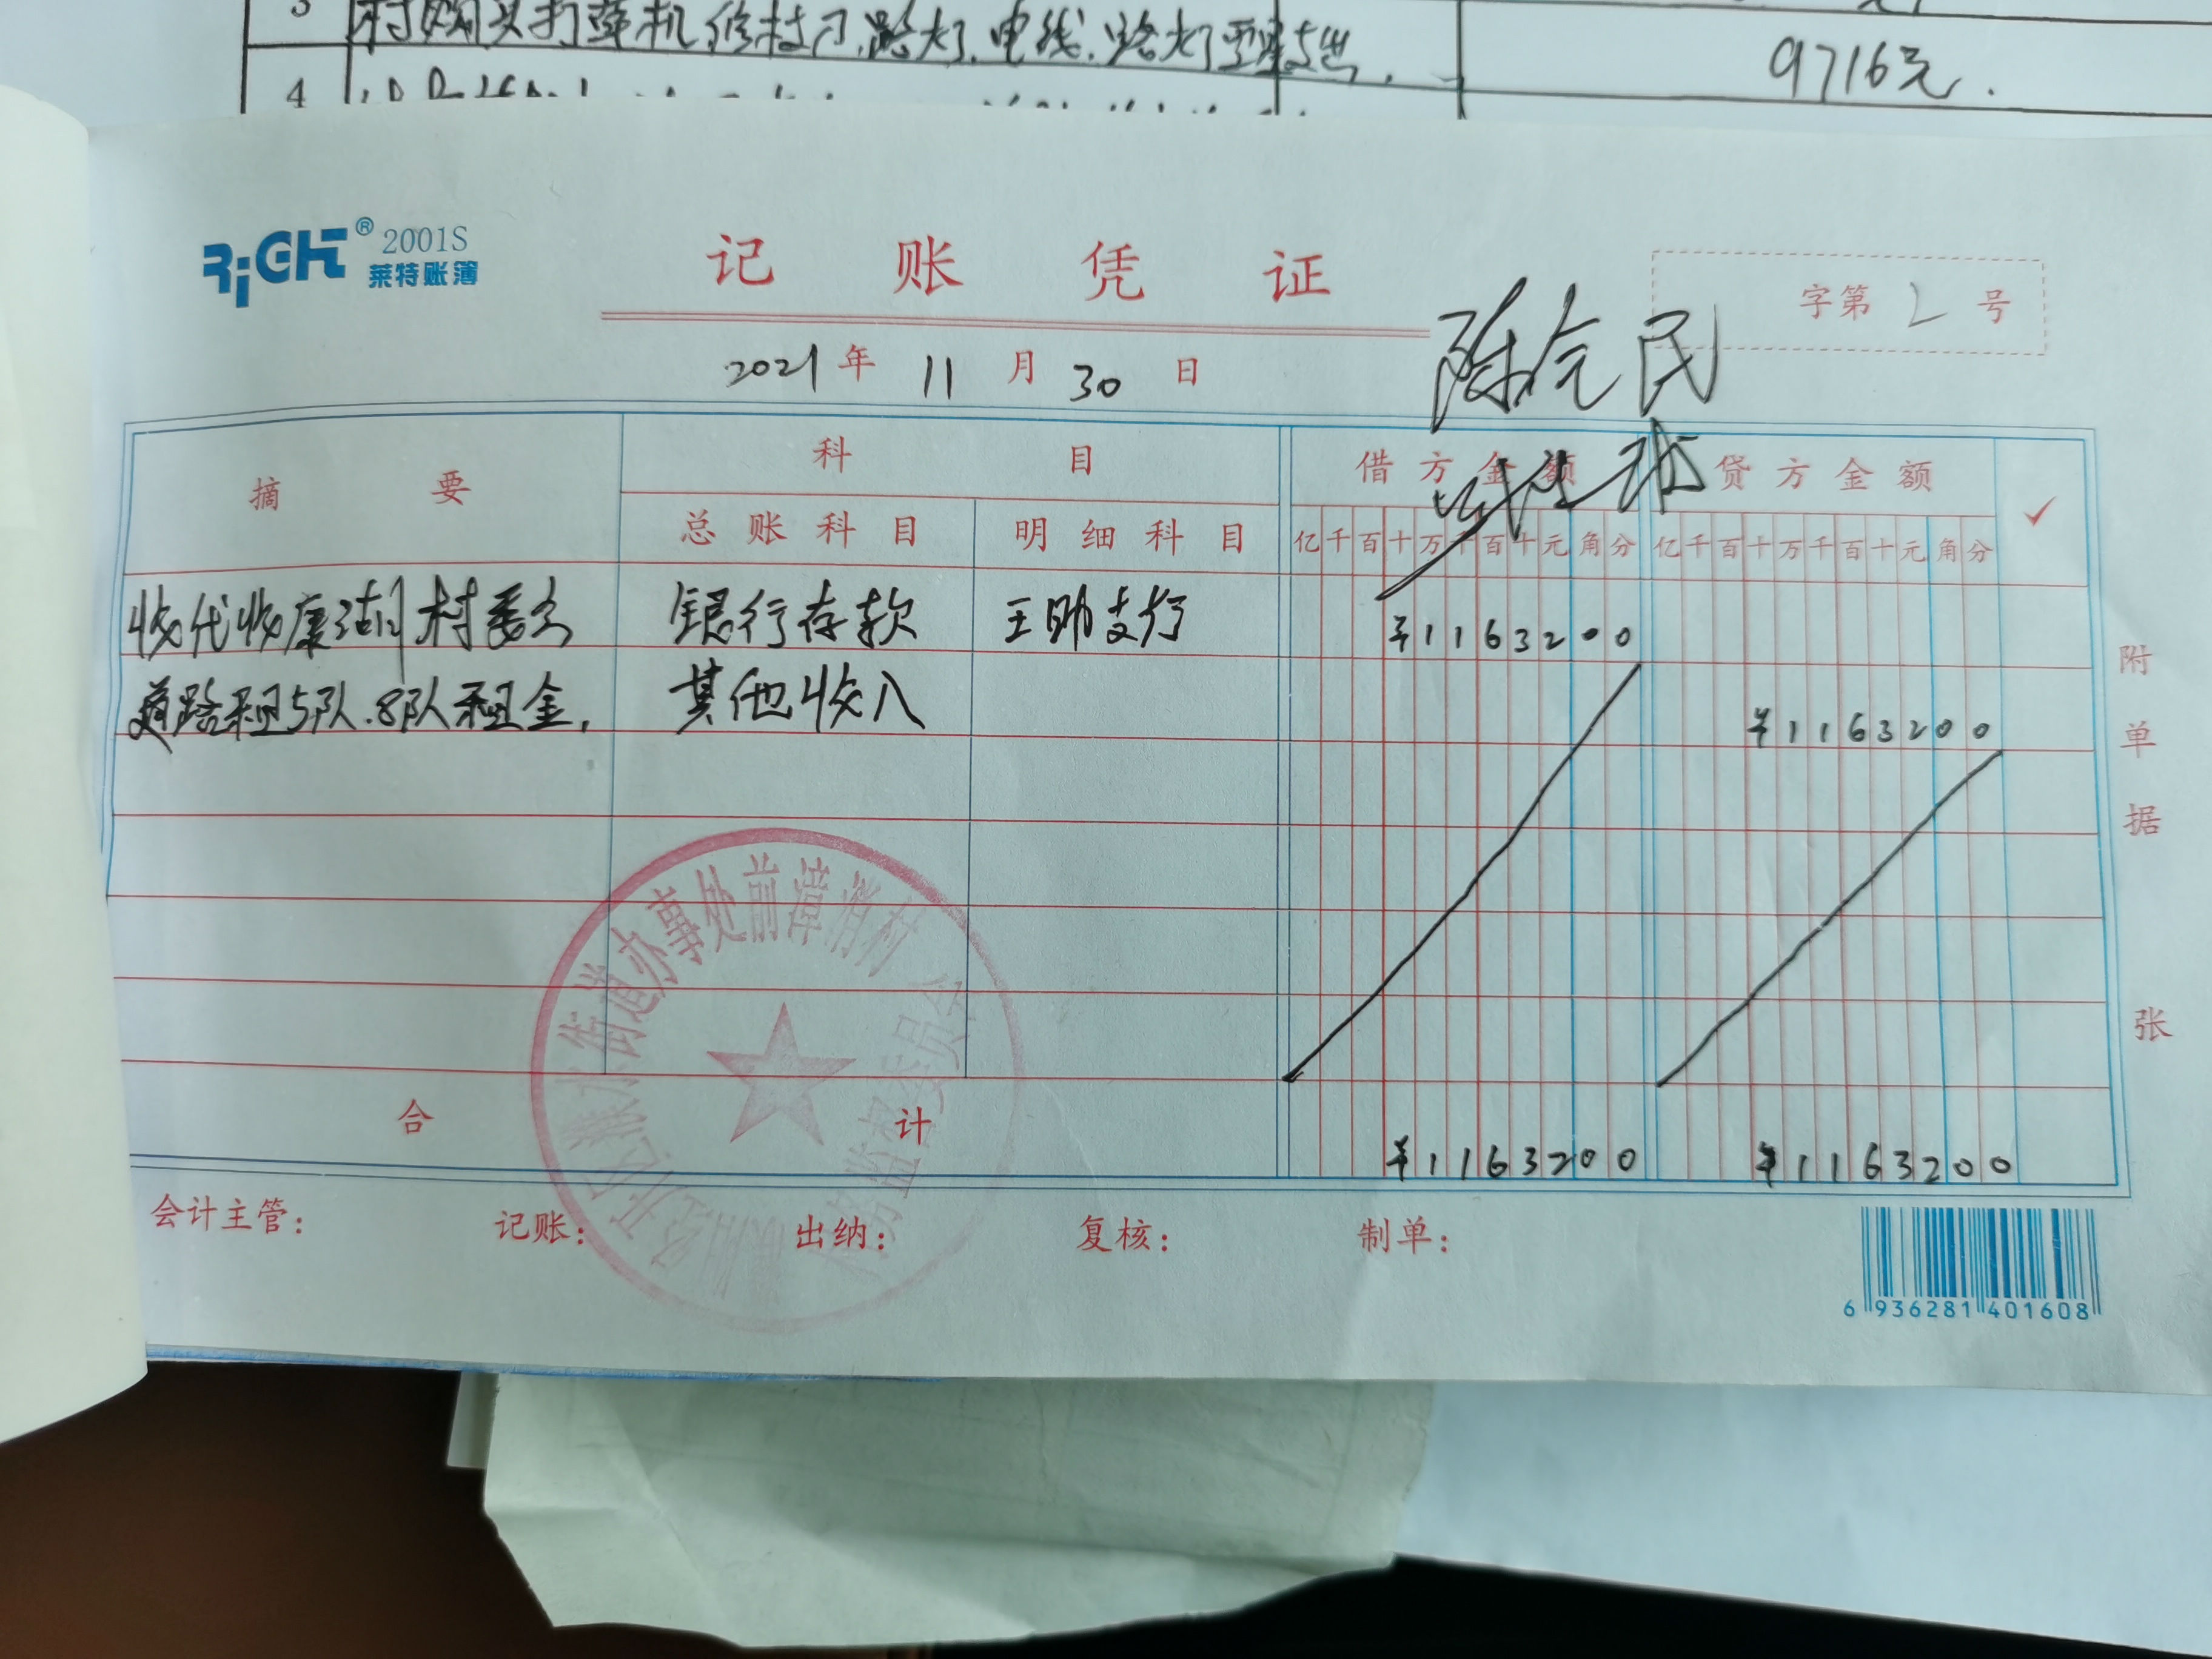 3 村购买打草机修枝刀.路灯.电线.路灯
9716元.
4
RiGHT® 2001S
莱特账簿
记账凭证
字第 2 号
2021年 11月 30日
陈 民
摘要 科目 借方金额 贷方金额 ✓
总账科目 明细科目 亿千百十万千百十元角分 亿千百十万千百十元角分
收代收康湖村委会 银行存款 王助支行 ¥1163200
道路租5队.8队租金. 其他收入 ¥1163200
附单据 张
街道办事处前漳消村
合计 ¥1163200 ¥1163200
会计主管: 记账: 出纳: 复核: 制单:
6 936281 401608